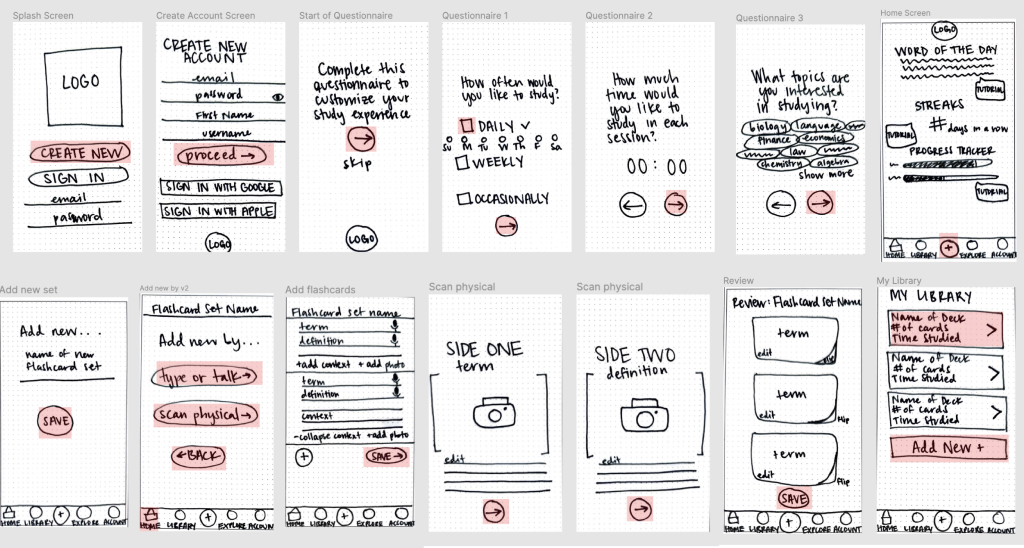 Splash Screen
LOGO
CREATE NEW
SIGN IN
email
password
Create Account Screen
CREATE NEW
ACCOUNT
email
password
First Name
username
proceed →
SIGN IN WITH GOOGLE
SIGN IN WITH APPLE
LOGO
Start of Questionnaire
Complete this
questionnaire to
customize your
study experience
→
skip
LOGO
Questionnaire 1
How often would
you like to study?
DAILY ✓
SU M TU W TH F SA
WEEKLY
OCCASIONALLY
→
Questionnaire 2
How much
time would
you like to
study in each
session?
00:00
← →
Questionnaire 3
What topics are
you interested
in studying?
biology language
finance economics
law
chemistry algebra
show more
← →
Home Screen
LOGO
WORD OF THE DAY
TUTORIAL
STREAKS
# days in a row
TUTORIAL
PROGRESS TRACKER
TUTORIAL
HOME LIBRARY + EXPLORE ACCOUNT
Add new set
Add new...
name of new
flashcard set
SAVE
HOME LIBRARY + EXPLORE ACCOUNT
Add new by v2
Flashcard Set Name
Add new by...
type or talk→
scan physical→
←BACK
HOME LIBRARY + EXPLORE ACCOUN
Add flashcards
Flashcard set name
term
definition
+add context + add photo
term
definition
context
-collapse context +add photo
+ SAVE →
HOME LIBRARY + EXPLORE ACCOUNT
Scan physical
SIDE ONE
term
edit
→
Scan physical
SIDE TWO
definition
edit
→
Review
Review: Flashcard Set Name
term
edit flip
term
edit flip
term
edit flip
SAVE
HOME LIBRARY + EXPLORE ACCOUNT
My Library
MY LIBRARY
Name of Deck
# of cards
Time Studied
>
Name of Deck
# of cards
Time Studied
>
Name of Deck
# of cards
Time Studied
>
Add New +
HOME LIBRARY + EXPLORE ACCOUNT